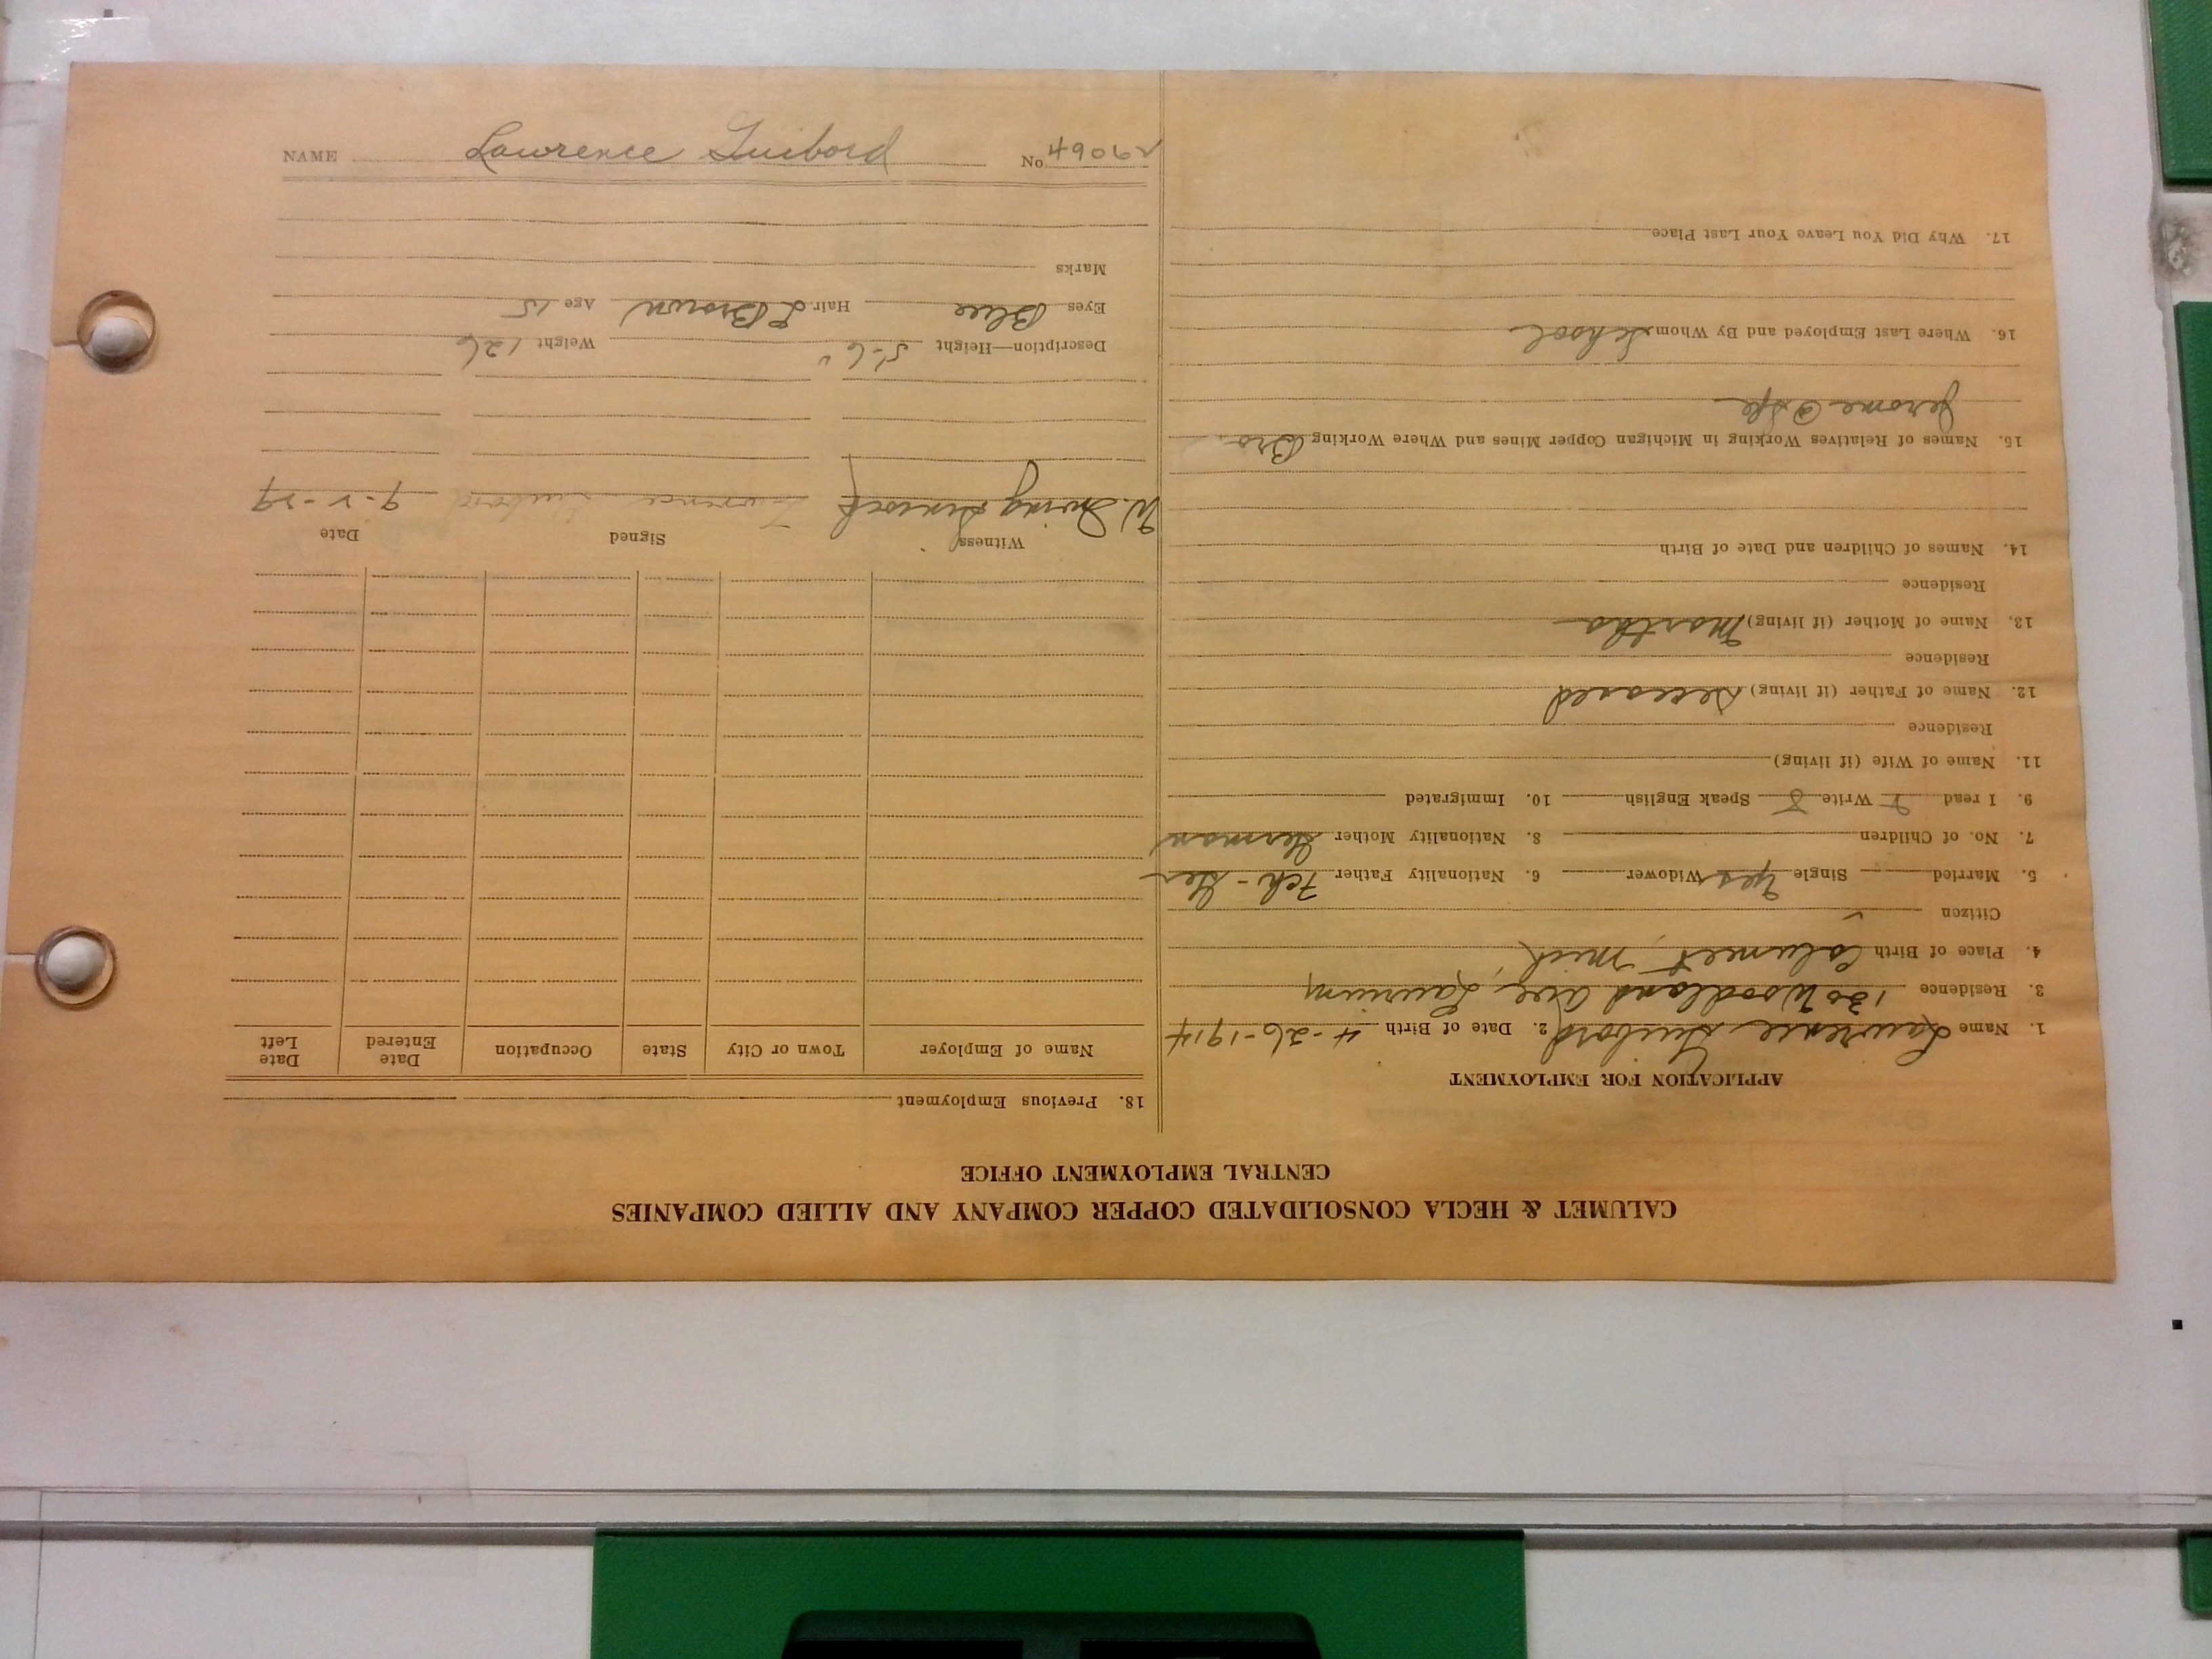 CALUMET & HECLA CONSOLIDATED COPPER COMPANY AND ALLIED COMPANIES
CENTRAL EMPLOYMENT OFFICE
APPLICATION FOR EMPLOYMENT
1. Name Lawrence Guibord 2. Date of Birth 4-26-1914
3. Residence 130 Woodland Ave, Laurium
4. Place of Birth Calumet, Mich
Citizen ✓
5. Married Single Yes Widower 6. Nationality Father Fch-Ger
7. No. of Children 8. Nationality Mother German
9. I read Write Speak English 10. Immigrated
11. Name of Wife (if living)
Residence
12. Name of Father (if living) Deceased
Residence
13. Name of Mother (if living) Martha
Residence
14. Names of Children and Date of Birth
15. Names of Relatives Working in Michigan Copper Mines and Where Working Bro.
Jerome @
16. Where Last Employed and By Whom School
17. Why Did You Leave Your Last Place
18. Previous Employment
Name of Employer Town or City State Occupation Date Entered Date Left
Witness Signed Date
W. Irving Lawrence Guibord 9-2-29
Description—Height 5-6 Weight 126
Eyes Blue Hair L Brown Age 15
Marks
NAME Lawrence Guibord
No 49062